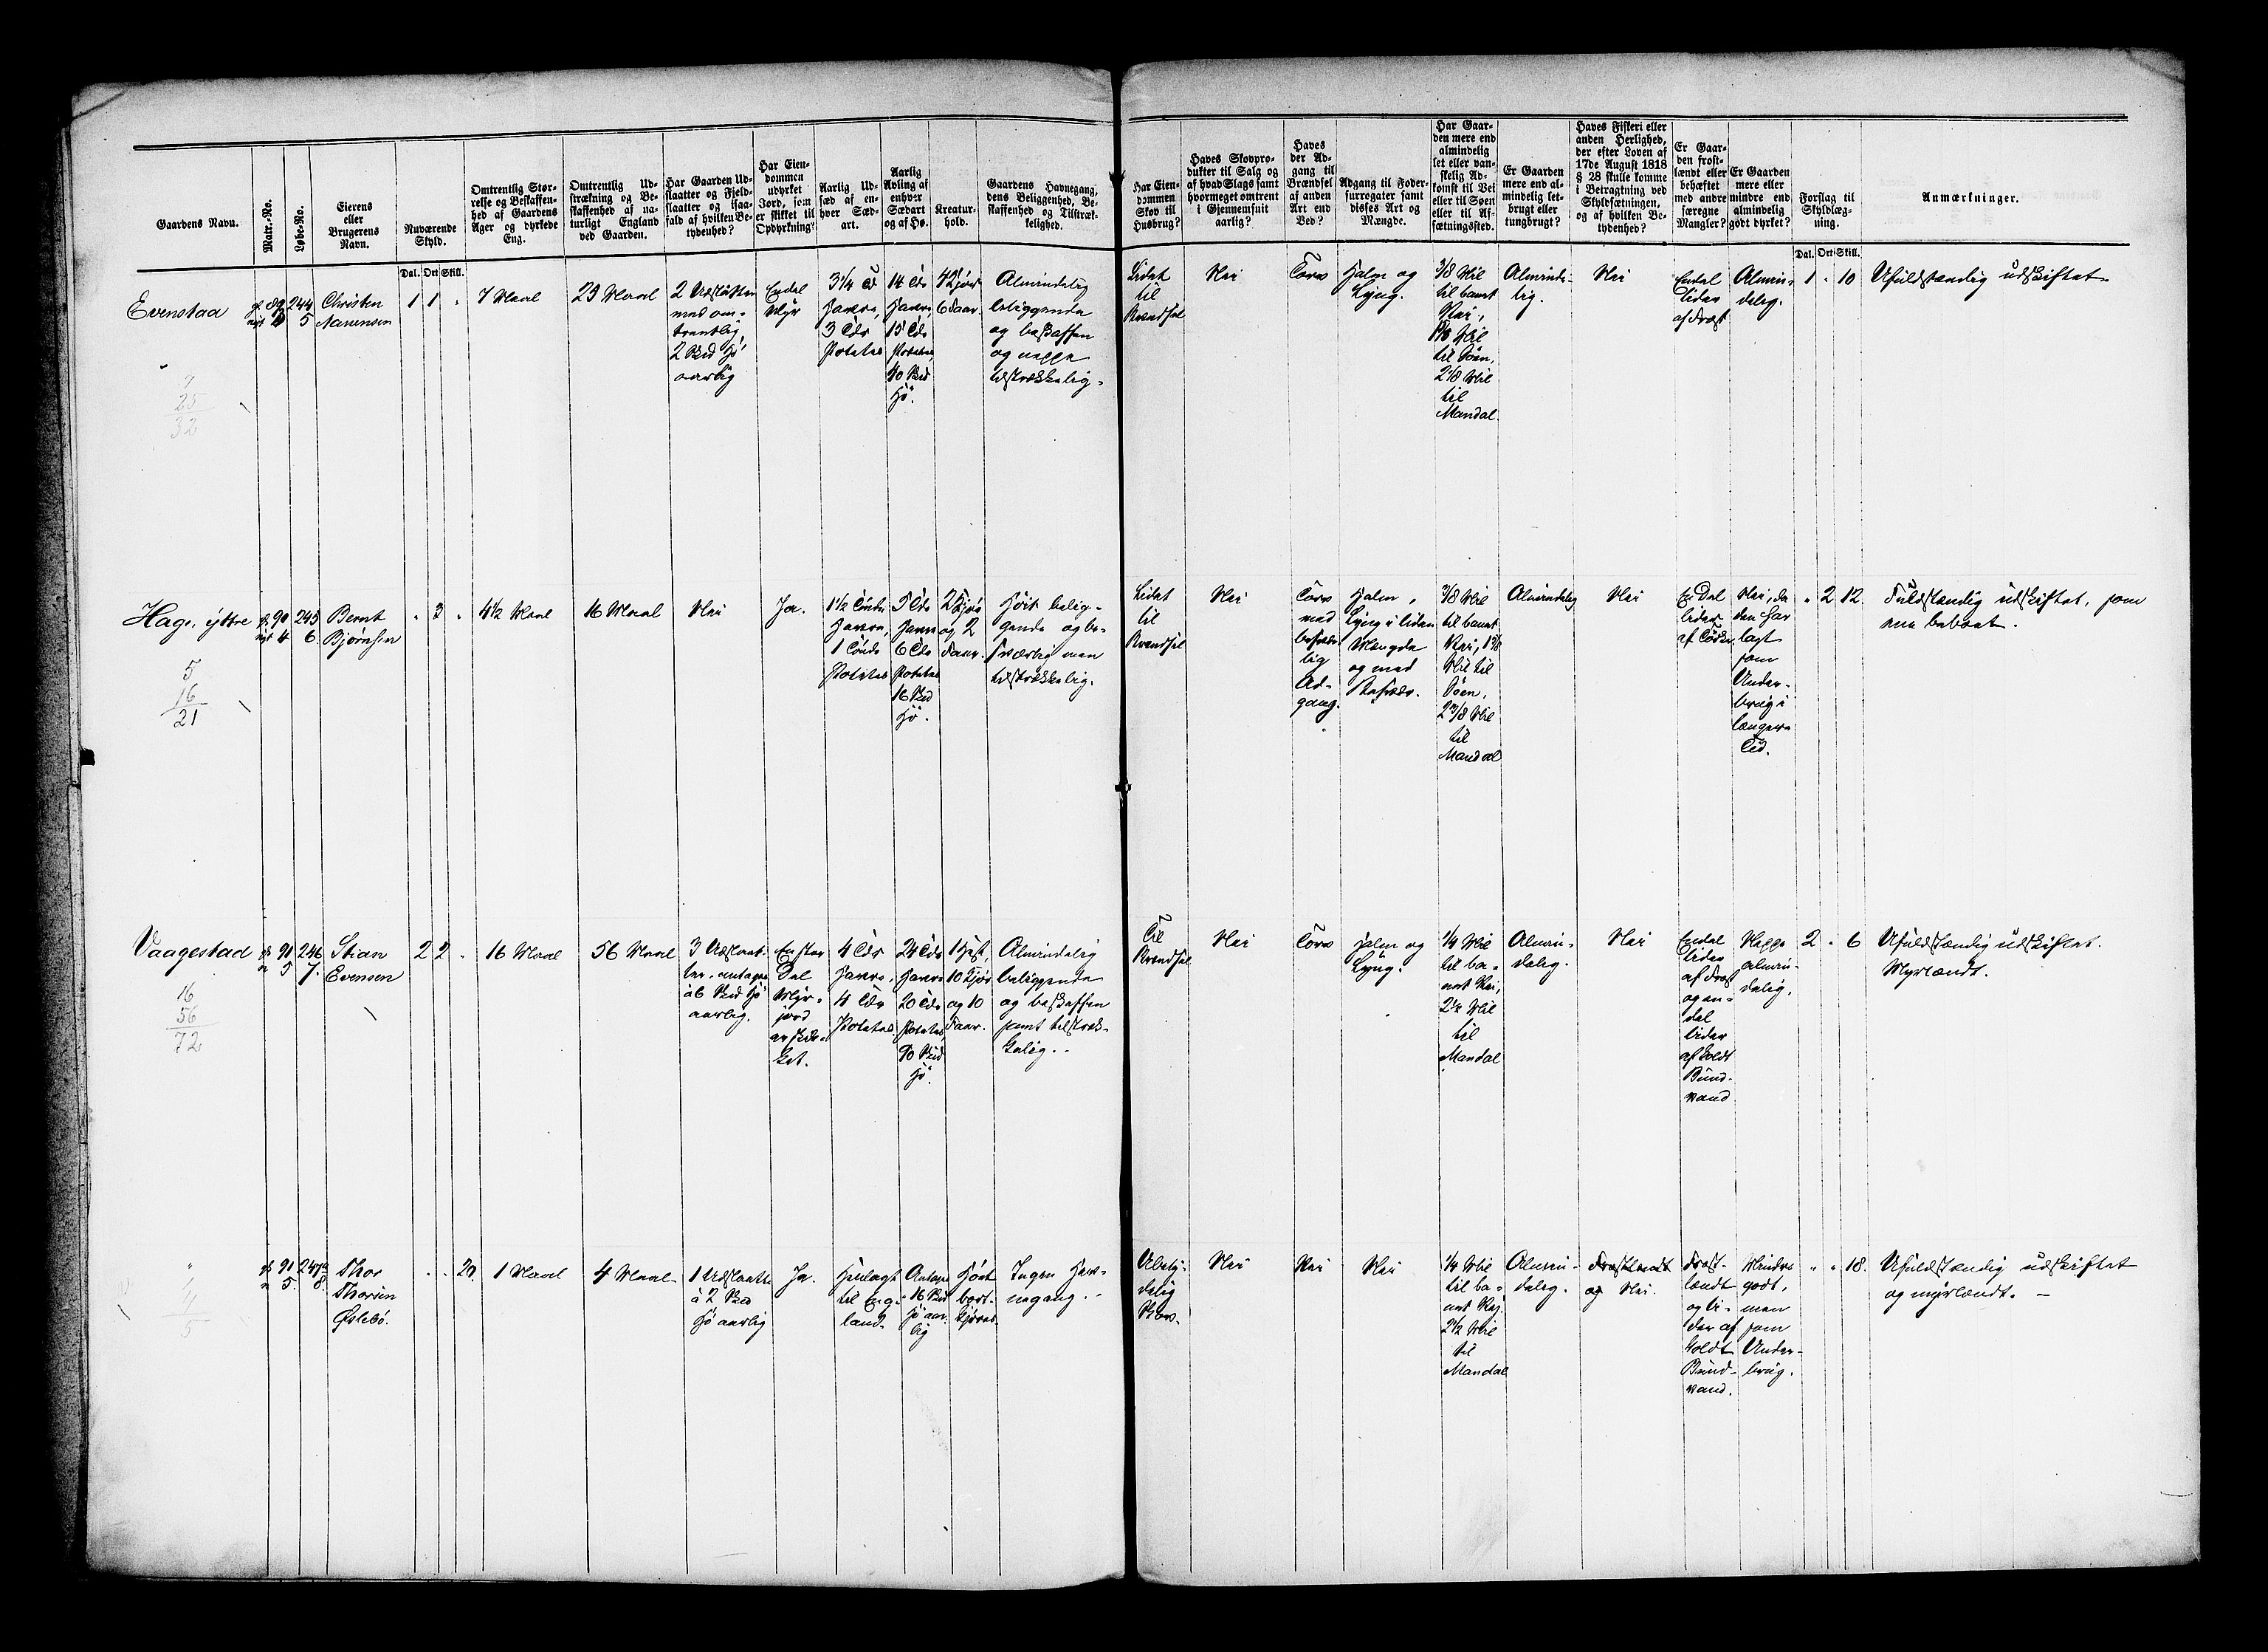 Gaardens Navn.
Matr.-No.
Løbe-No.
Eierens
eller
Brugerens
Navn.
Nuværende
Skyld.
Omtrentlig Stør-
relse og Beskaffen-
hed af Gaardens
Ager og dyrkede
Eng.
Omtrentlig Ud-
strækning og Be-
skaffenhed af na-
turligt England
ved Gaarden.
Har Gaarden Ud-
slaatter og Fjeld-
slaatter og isaa-
fald af hvilken Be-
tydenhed?
Har Eien-
dommen
udyrket
Jord, som
er skikket til
Opdyrkning?
Aarlig Ud-
sæd af en-
hver Sæd-
art.
Aarlig
Avling af
enhver
Sædart
og af Hø.
Kreatur-
hold.
Gaardens Havnegang,
dens Beliggenhed, Be-
skaffenhed og Tilstræk-
kelighed.
Har Eien-
dommen
Skov til
Husbrug?
Haves Skovpro-
dukter til Salg og
af hvad Slags samt
hvormeget omtrent
i Gjennemsnit
aarlig?
Haves
der Ad-
gang til
Brændsel
af anden
Art end
Ved?
Adgang til Foder-
surrogater samt
disses Art og
Mængde.
Har Gaar-
den mere end
almindelig
let eller van-
skelig Ad-
komst til Vei
eller til Søen
eller til Af-
sætningssted.
Er Gaarden
mere end al-
mindelig let-
brugt eller
tungbrugt?
Haves Fiskeri eller
anden Herlighed,
der efter Loven af
17de August 1818
§ 28 skulle komme
i Betragtning ved
Skyldsætningen,
og af hvilken Be-
tydenhed?
Er Gaar-
den frost-
lændt eller
behæftet
med andre
særegne
Mangler?
Er Gaarden
mere eller
mindre end
almindelig
godt dyrket?
Forslag til
Skyldlæg-
ning.
Anmærkninger.
Dal. Ort Skill.
Dal. Ort Skill.
Evenstaa
244
5
Christen
1 1 "
7 Maal
29 Maal
2 Udslåtter
med om-
trentlig
2 Skd Hö
aarlig
Endel
Myr
3¼ Td
Havre,
3 Tdr
Potetes
14 Tdr
Havre,
15 Tdr
Potetes,
40 Skd
Hö.
4 Kjör
6 Faar.
Almindelig
beliggende
og beskaffen
og neppe
tilstrækkelig.
Lidet
til
Brændsel
Nei
Torv
Halm og
Lyng.
3/8 Mil
til banet
Vei,
til Söen,
2 1/8 Mil
til
Mandal
Alminde-
lig.
Nei
Endel
lider
af Frost
Almin-
delig.
1 " 10
Ufuldstændig udskiftet.
7
25
32
Hage, ytre
90
4
245
6.
Bernt
Bjørnsen
" 3 "
4½ Maal
16 Maal
Nei
Ja.
1½ Tønde
Havre,
1 Tønde
Potetes
5 Tdr
Havre
6 Tdr
Potetes
16 Skd
Hö.
2 Kjör
og 2
Faar.
Höit belig-
gende og be-
sværlig men
tilstrækkelig.
Lidet
til
Brændsel
Nei
Torv
med
besvær-
lig
Ad-
gang.
Halm,
Lyng i liden
Mængde
og med
Besvær.
3/8 Mil
til banet
Vei,
Mil til
Söen,
2 3/8 Mil
til
Mandal
Almindelig
Nei
En Del
lider
af Törke.
Nei, da
den har
lagt
som
Under-
brug i
længere
Tid.
" 2 12.
Fuldstændig udskiftet, som
5
16
21
Vaagestad
91
5
246
7.
Stian
Evensen
2 2 "
16 Maal
56 Maal
3 Udslaat-
ter, antages
à 6 Skd Hö
aarlig.
En stor
Del
Myr-
jord
er skik-
ket.
4 Tdr
Havre,
4 Tdr
Potetes
24 Tdr
Havre
20 Tdr
Potetes,
90 Skd
Hö.
1 Hest,
10 Kjör
og 10
Faar.
Almindelig
beliggende
og beskaffen
samt tilstræk-
kelig.
Til
Brændsel
Nei
Torv
Halm og
Lyng.
¼ Mil
til ba-
net Vei,
2½ Mil
til
Mandal
Almin-
delig.
Nei
Endel
lider
af Frost
og en
del
lider
af koldt
Bund-
vand
Neppe
almin-
delig.
2 " 6
Ufuldstændig udskiftet.
Myrlændt.
16
56
72
"
91
5.
247
8.
Thor
Øslebö.
" " 20.
1 Maal
4 Maal
1 Udslaatte
à 2 Skd
Hö aarlig
Ja.
Henlagt
til Eng-
land.
Antages
16 Skd
Hö aar-
lig
Höet
bort-
kjöres.
Ingen Hav-
negang.
Ubety-
delig
Skov.
Nei
Nei
Nei
¼ Mil
til ba-
net Vej.
2½ Mil
til
Mandal
Almin-
delig.
Nei.
Frost-
lændt
og li-
der af
koldt
Bund-
vand.
Mindre
godt,
men
som
Under-
brug.
" " 18.
Ufuldstændig udskiftet
og myrlændt.
1
4
5